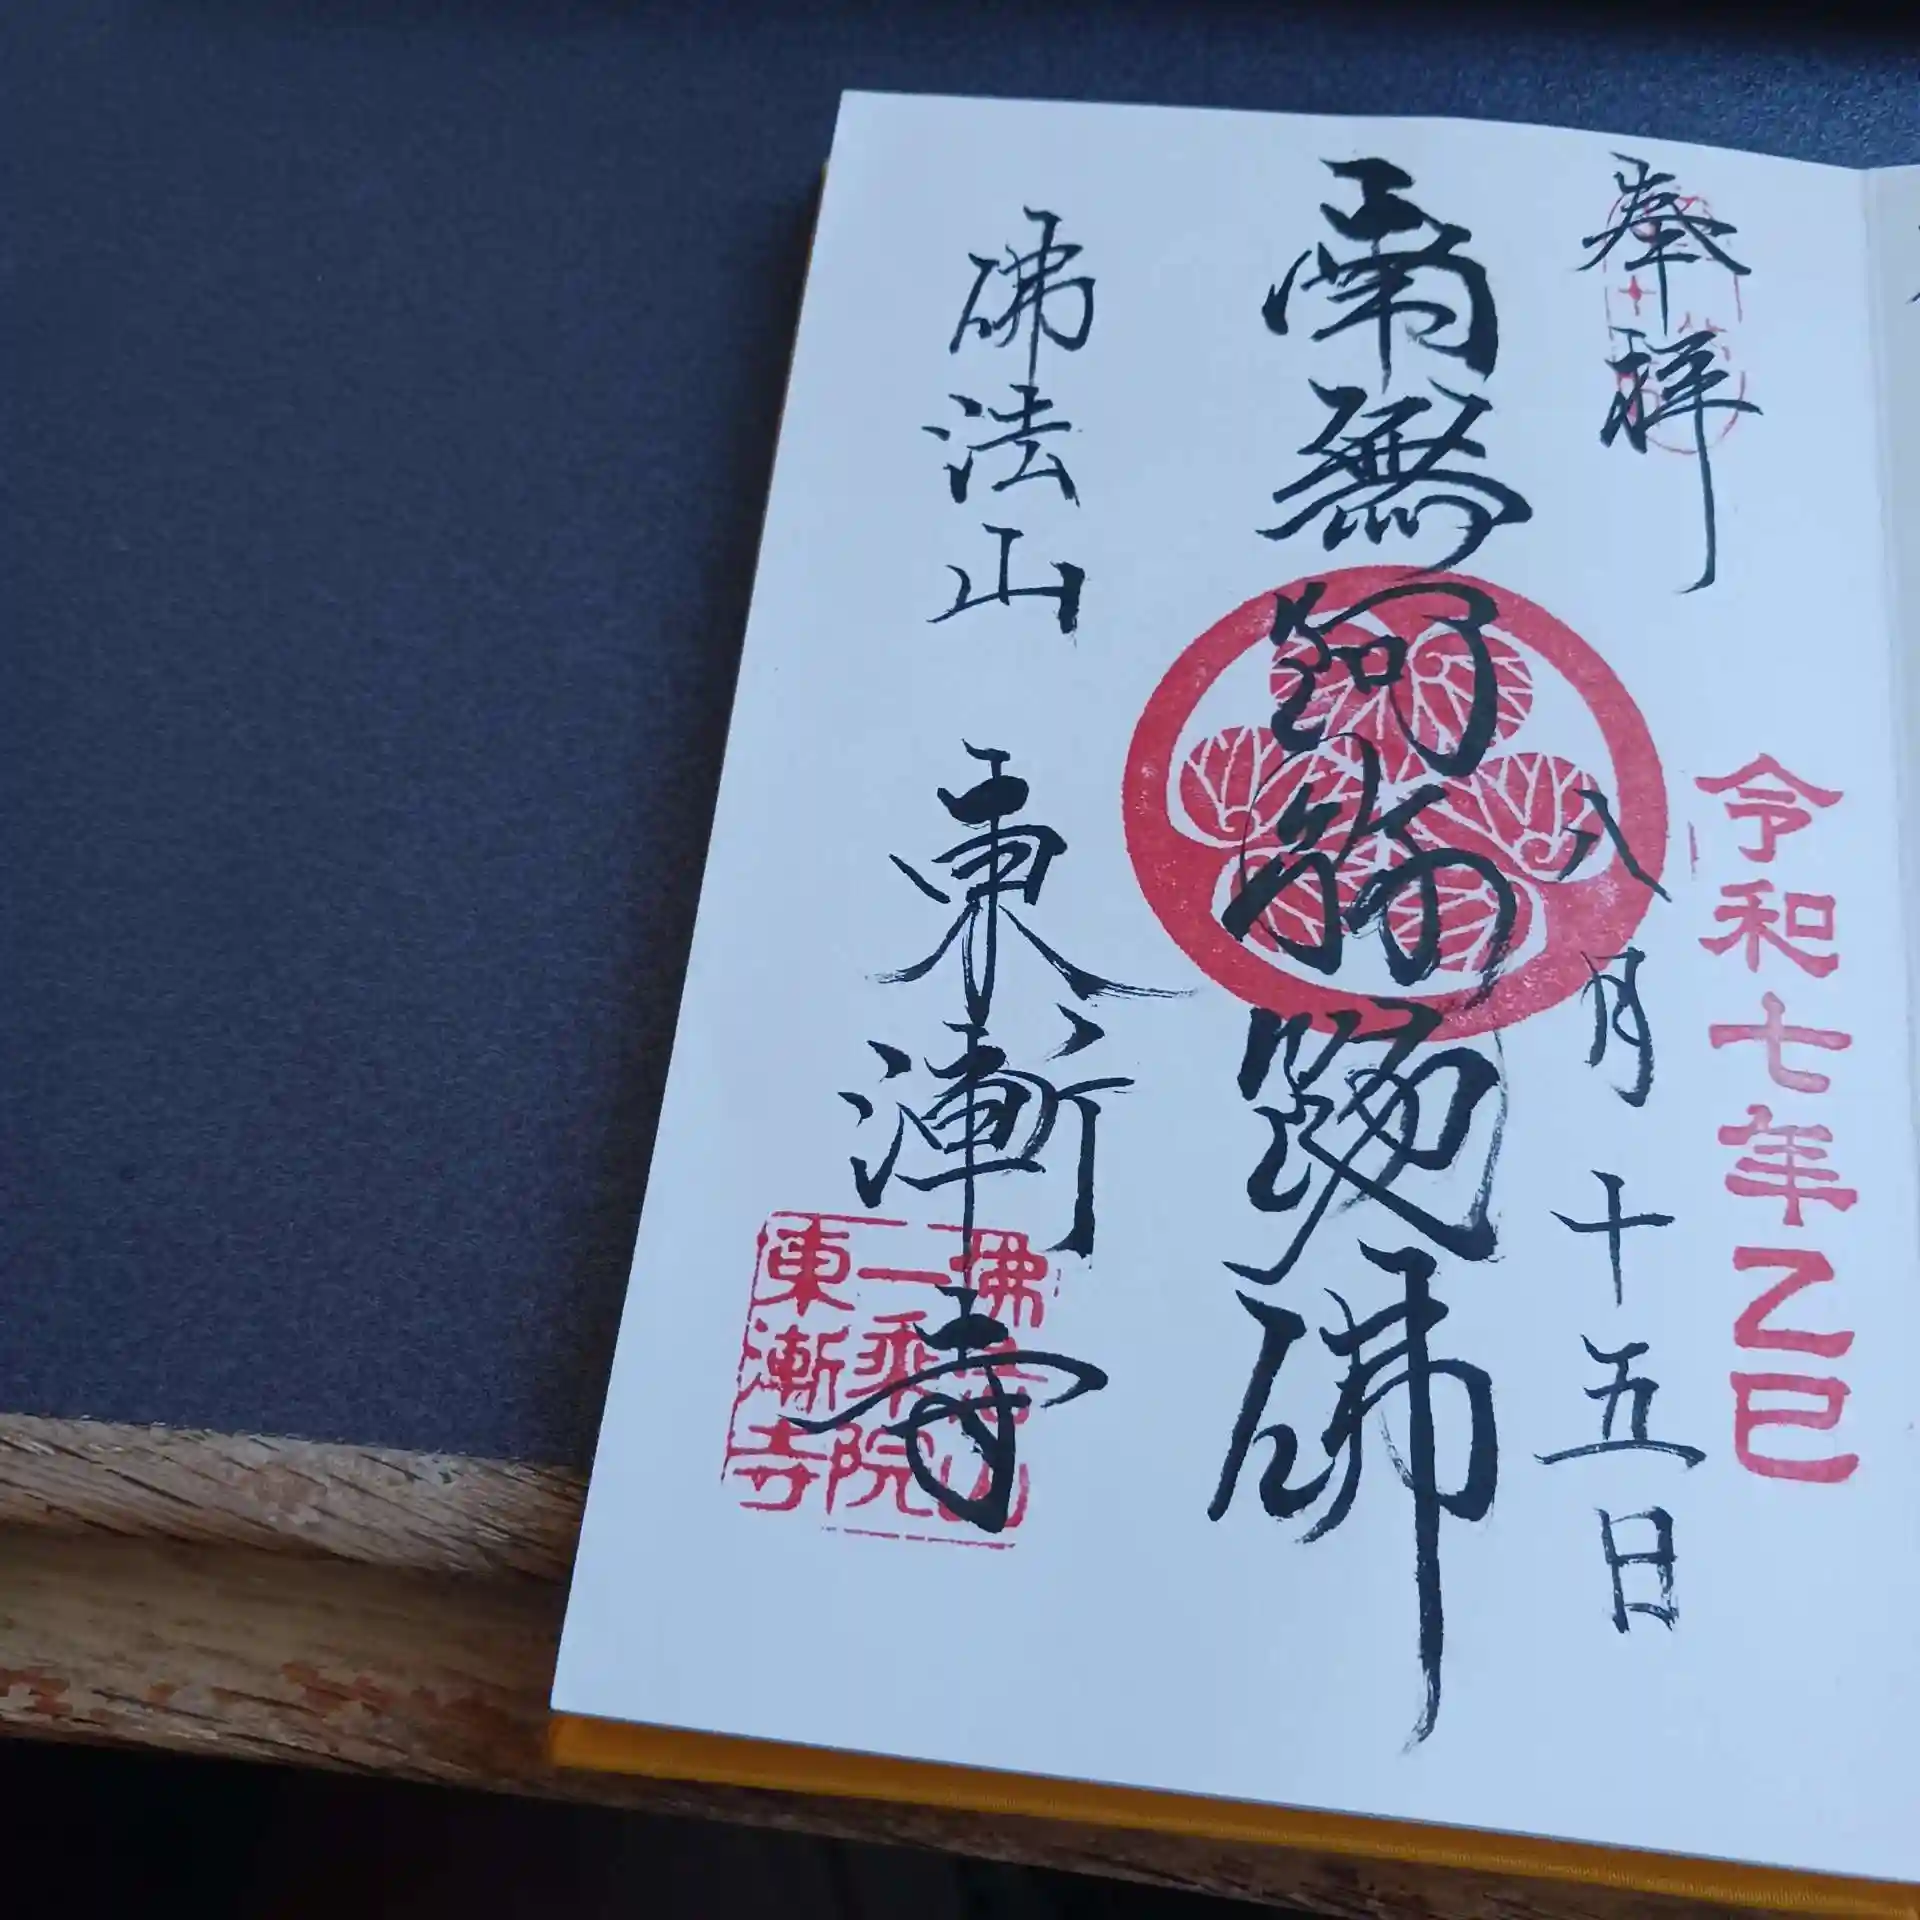 奉拝
令和七年乙巳
八月十五日
南無阿弥陀佛
佛法山 東漸寺
佛法山
一乘院
東漸寺